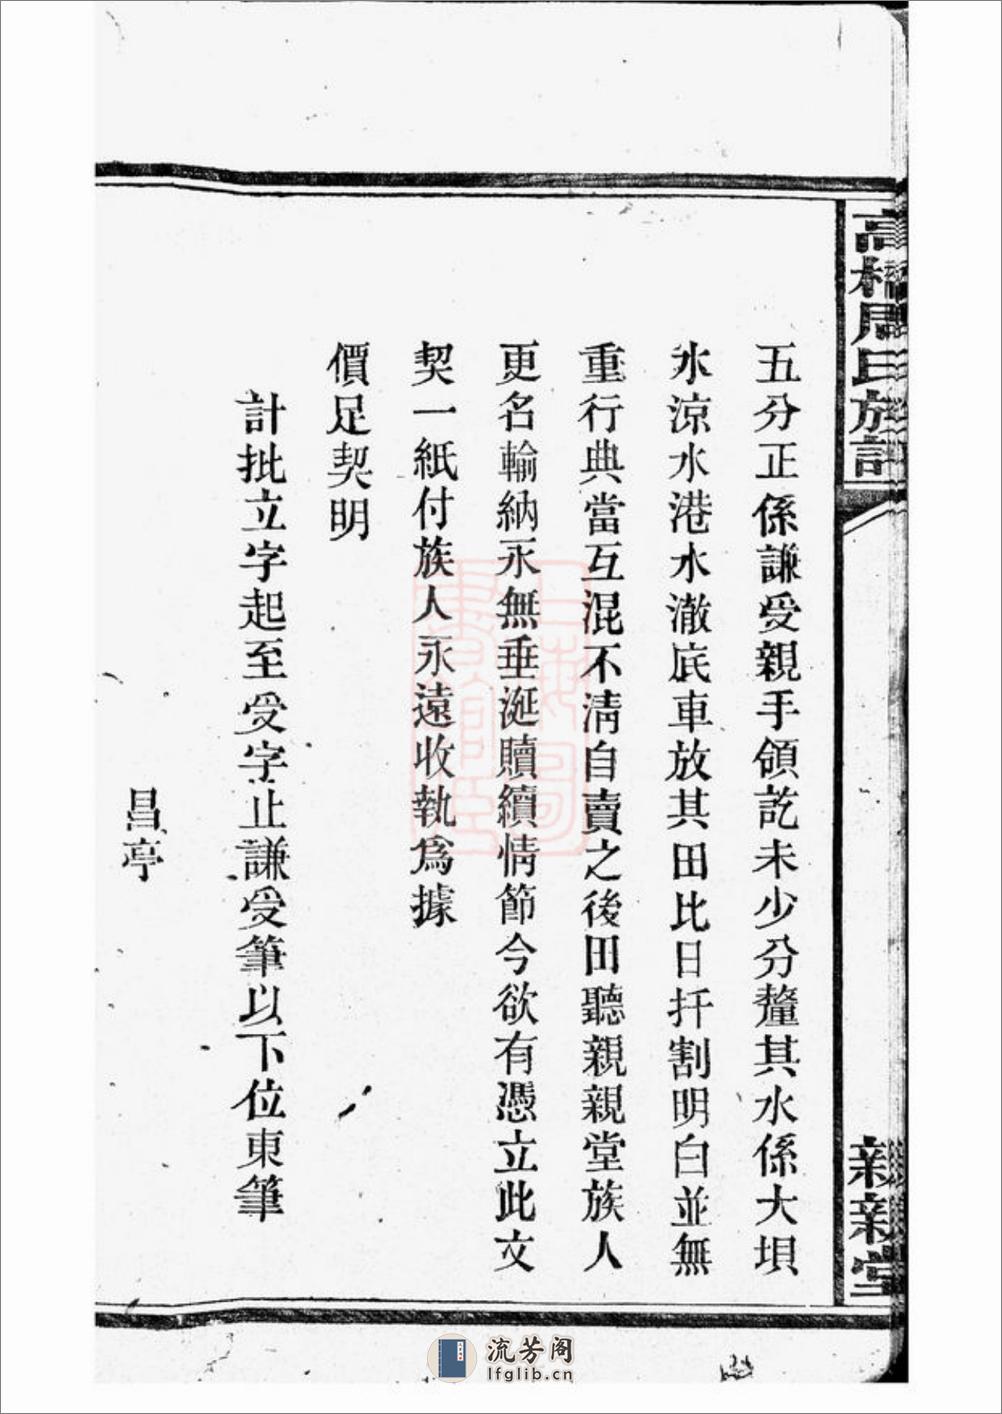 高橋周氏族譜
親親堂
五分正係謙受親手領訖未少分釐其水係大垻
氷涼水港水澈底車放其田比日扦割明白並無
重行典當互混不淸自賣之後田聽親親堂族人
更名輸納永無垂涎贖續情節今欲有憑立此文
契一紙付族人永遠收執爲據
價足契明
計批立字起至受字止謙受筆以下位東筆
昌亭
流芳阁
lfglib.cn